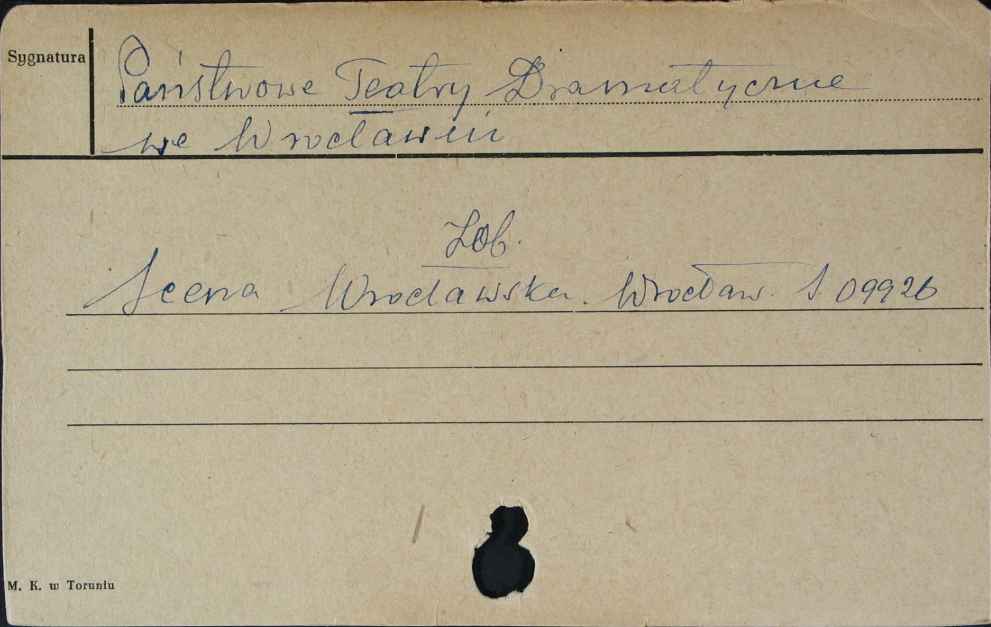 Sygnatura
Państwowe Teatry Dramatyczne
we Wrocławiu
Zob.
Scena Wrocławska. Wrocław. S 09926
M. K. w Toruniu